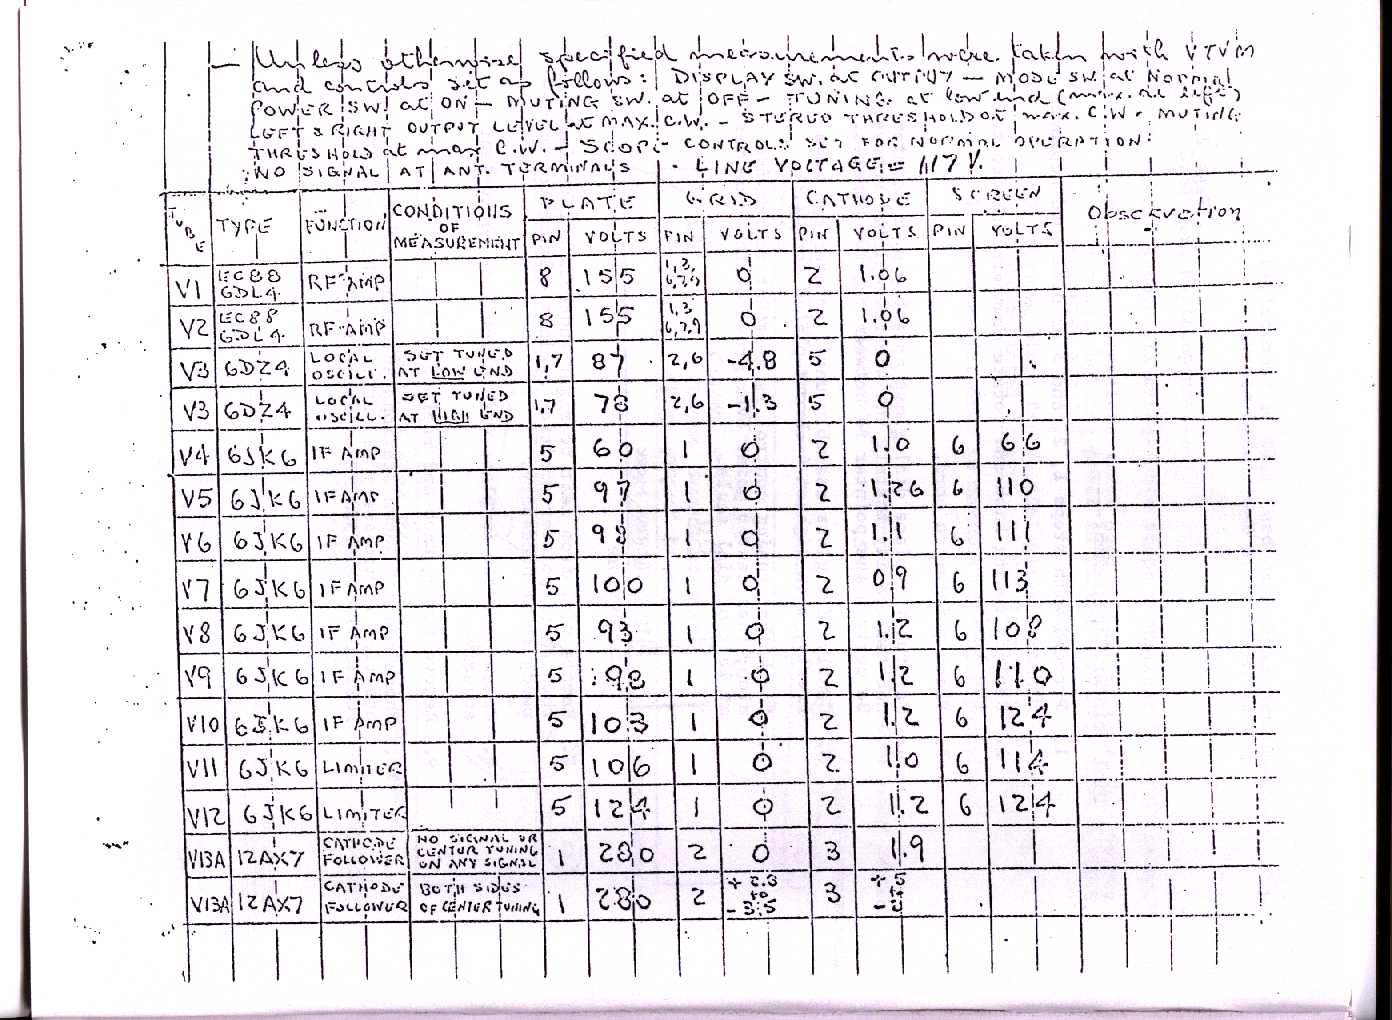 — Unless otherwise specified measurements were taken with VTVM
and controls set as follows: DISPLAY SW. at OUTPUT — MODE SW. at NORMAL
POWER SW. at ON — MUTING SW. at OFF — TUNING at low end (max. at left)
LEFT & RIGHT OUTPUT LEVEL at MAX. C.W. — STEREO THRESHOLD at max. C.W. MUTING
THRESHOLD at max C.W. — SCOPE CONTROLS SET FOR NORMAL OPERATION.
NO SIGNAL AT ANT. TERMINALS - LINE VOLTAGE = 117 V.
TUBE TYPE FUNCTION CONDITIONS OF MEASUREMENT PLATE GRID CATHODE SCREEN Observation
PIN VOLTS PIN VOLTS PIN VOLTS PIN VOLTS
V1 EC88 6DL4 RF AMP 8 155 1,3, 6,7,9 0 2 1.06
V2 EC88 6DL4 RF AMP 8 155 1,3 6,7,9 0 2 1.06
V3 6DZ4 LOCAL OSCILL. SET TUNED AT LOW END 1,7 87 2,6 -4.8 5 0
V3 6DZ4 LOCAL OSCILL. SET TUNED AT HIGH END 1,7 78 2,6 -1.3 5 0
V4 6JK6 IF AMP 5 60 1 0 2 1.0 6 66
V5 6JK6 IF AMP 5 97 1 0 2 1.26 6 110
V6 6JK6 IF AMP 5 98 1 0 2 1.1 6 111
V7 6JK6 IF AMP 5 100 1 0 2 09 6 113
V8 6JK6 IF AMP 5 93 1 0 2 1.2 6 108
V9 6JK6 IF AMP 5 98 1 0 2 1.2 6 110
V10 6JK6 IF AMP 5 103 1 0 2 1.2 6 124
V11 6JK6 LIMITER 5 106 1 0 2 1.0 6 114
V12 6JK6 LIMITER 5 124 1 0 2 1.2 6 124
V13A 12AX7 CATHODE FOLLOWER NO SIGNAL OR CENTER TUNING ON ANY SIGNAL 1 280 2 0 3 1.9
V13A 12AX7 CATHODE FOLLOWER BOTH SIDES OF CENTER TUNING 1 280 2 + 2.8 to - 3.5 3 + 5 to